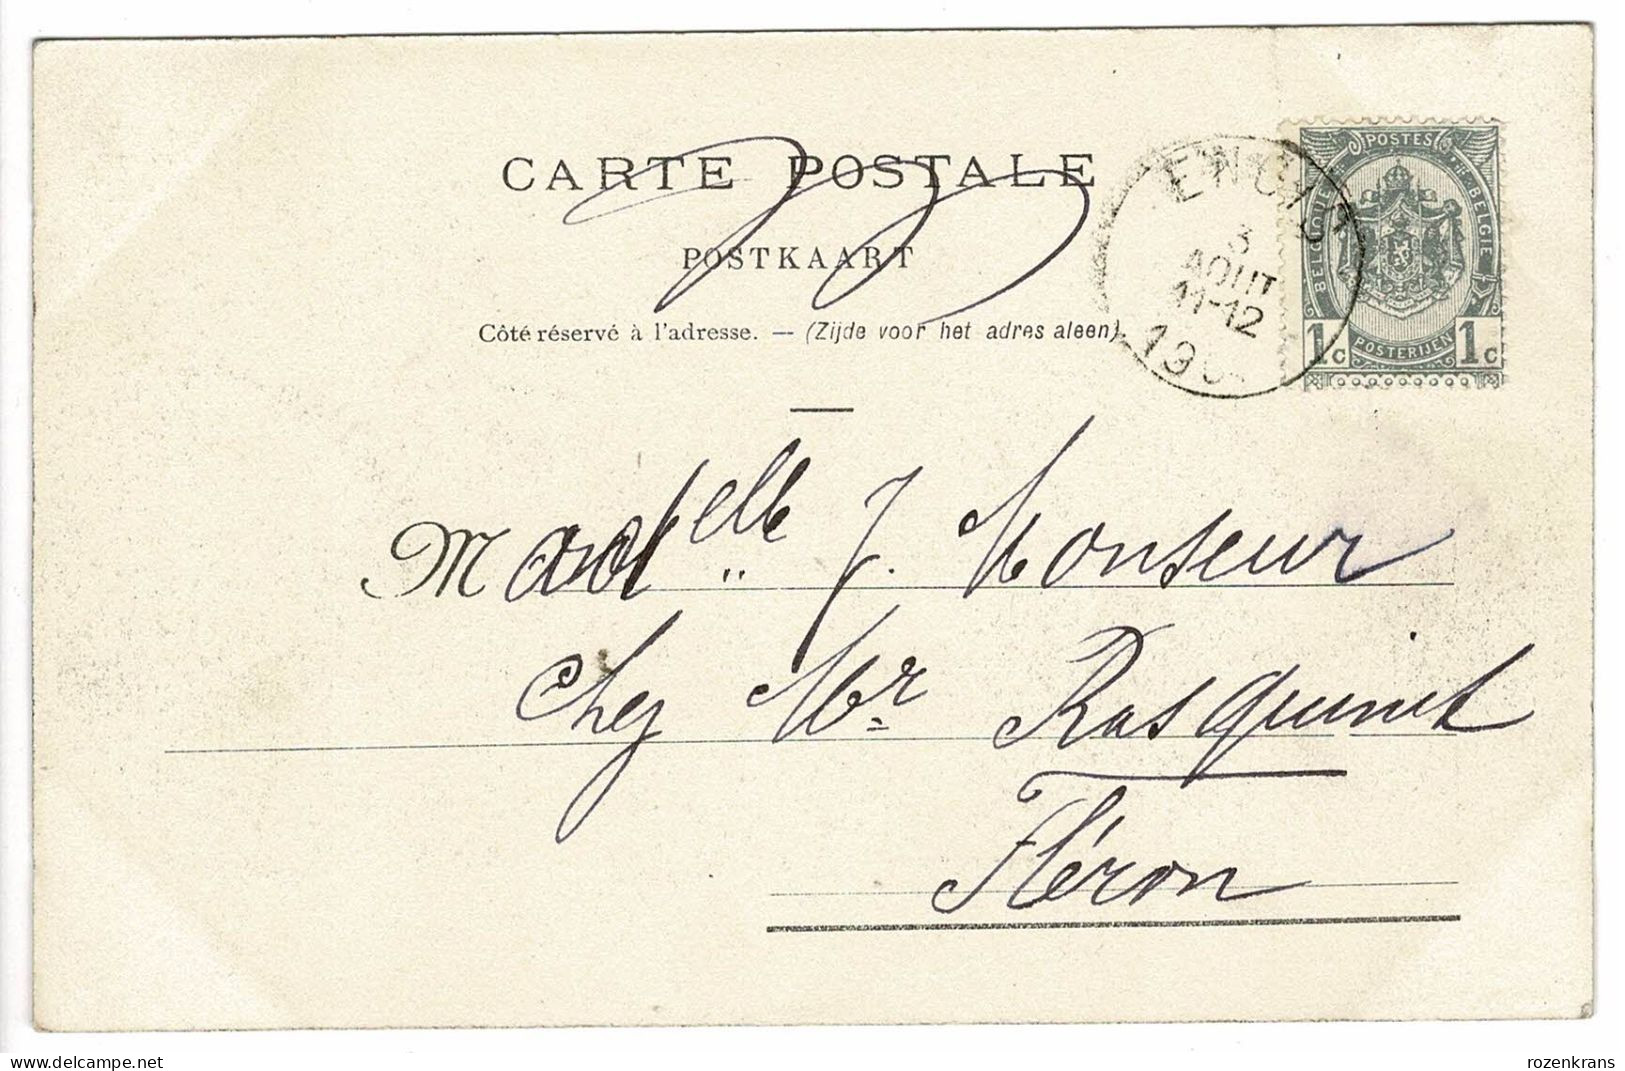 CARTE POSTALE
POSTKAART
Côté réservé à l'adresse. — (Zijde voor het adres aleen)
3
AOUT
11-12
POSTES
BELGIQUE
BELGIE
POSTERIJEN
1c 1c
Madelle J. Monseur
Chez Mr Rasquinet
Fléron
rozenkrans